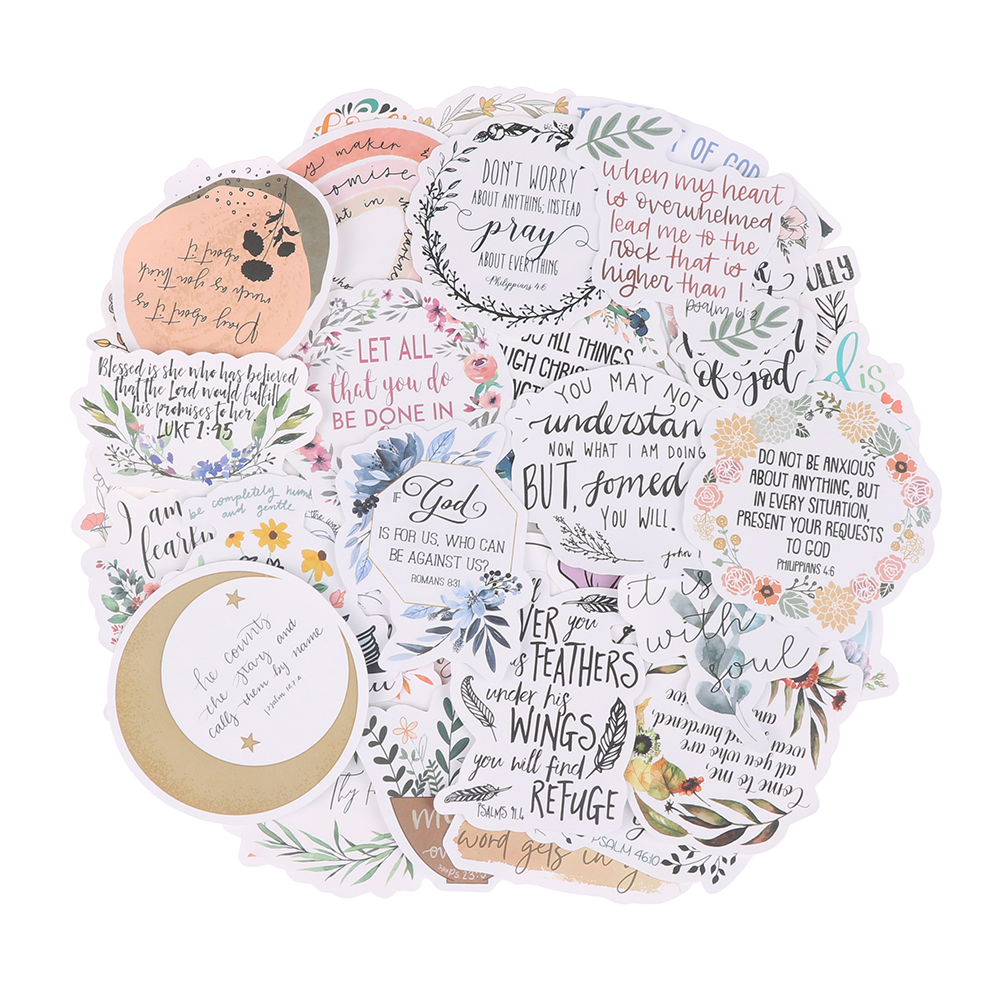 y maker &
omise
DON'T WORRY
ABOUT ANYTHING; INSTEAD
pray
ABOUT EVERYTHING
Philippians 4:6
T OF GOD
when my heart
is overwhelmed
lead me to the
rock that is
higher than I.
psalm 61:2
ULLY
Pray about it as
much as you think
about it
Blessed is she who has believed
that the Lord would fulfill
his promises to her.
LUKE 1:45
LET ALL
that you do
BE DONE IN
DO ALL THINGS
UGH CHRIS
of god
d is
YOU MAY NOT
understan
NOW WHAT I AM DOING
BUT, somed
YOU WILL.
john
DO NOT BE ANXIOUS
ABOUT ANYTHING, BUT
IN EVERY SITUATION,
PRESENT YOUR REQUESTS
TO GOD
PHILIPPIANS 4:6
I am
fearfu
be completely humb
and gentle
IF God
IS FOR US, WHO CAN
BE AGAINST US?
ROMANS 8:31
he counts
the stars and
calls them by name
psalm 147:4
VER you
FEATHERS
under his
WINGS
you will find
REFUGE
PSALMS 91:4
it is
with
soul
Come to me,
all you who are
wea
d burdened,
an
Thy
m
ov
PS. 23:5
word gets in y
PSALM 46:10